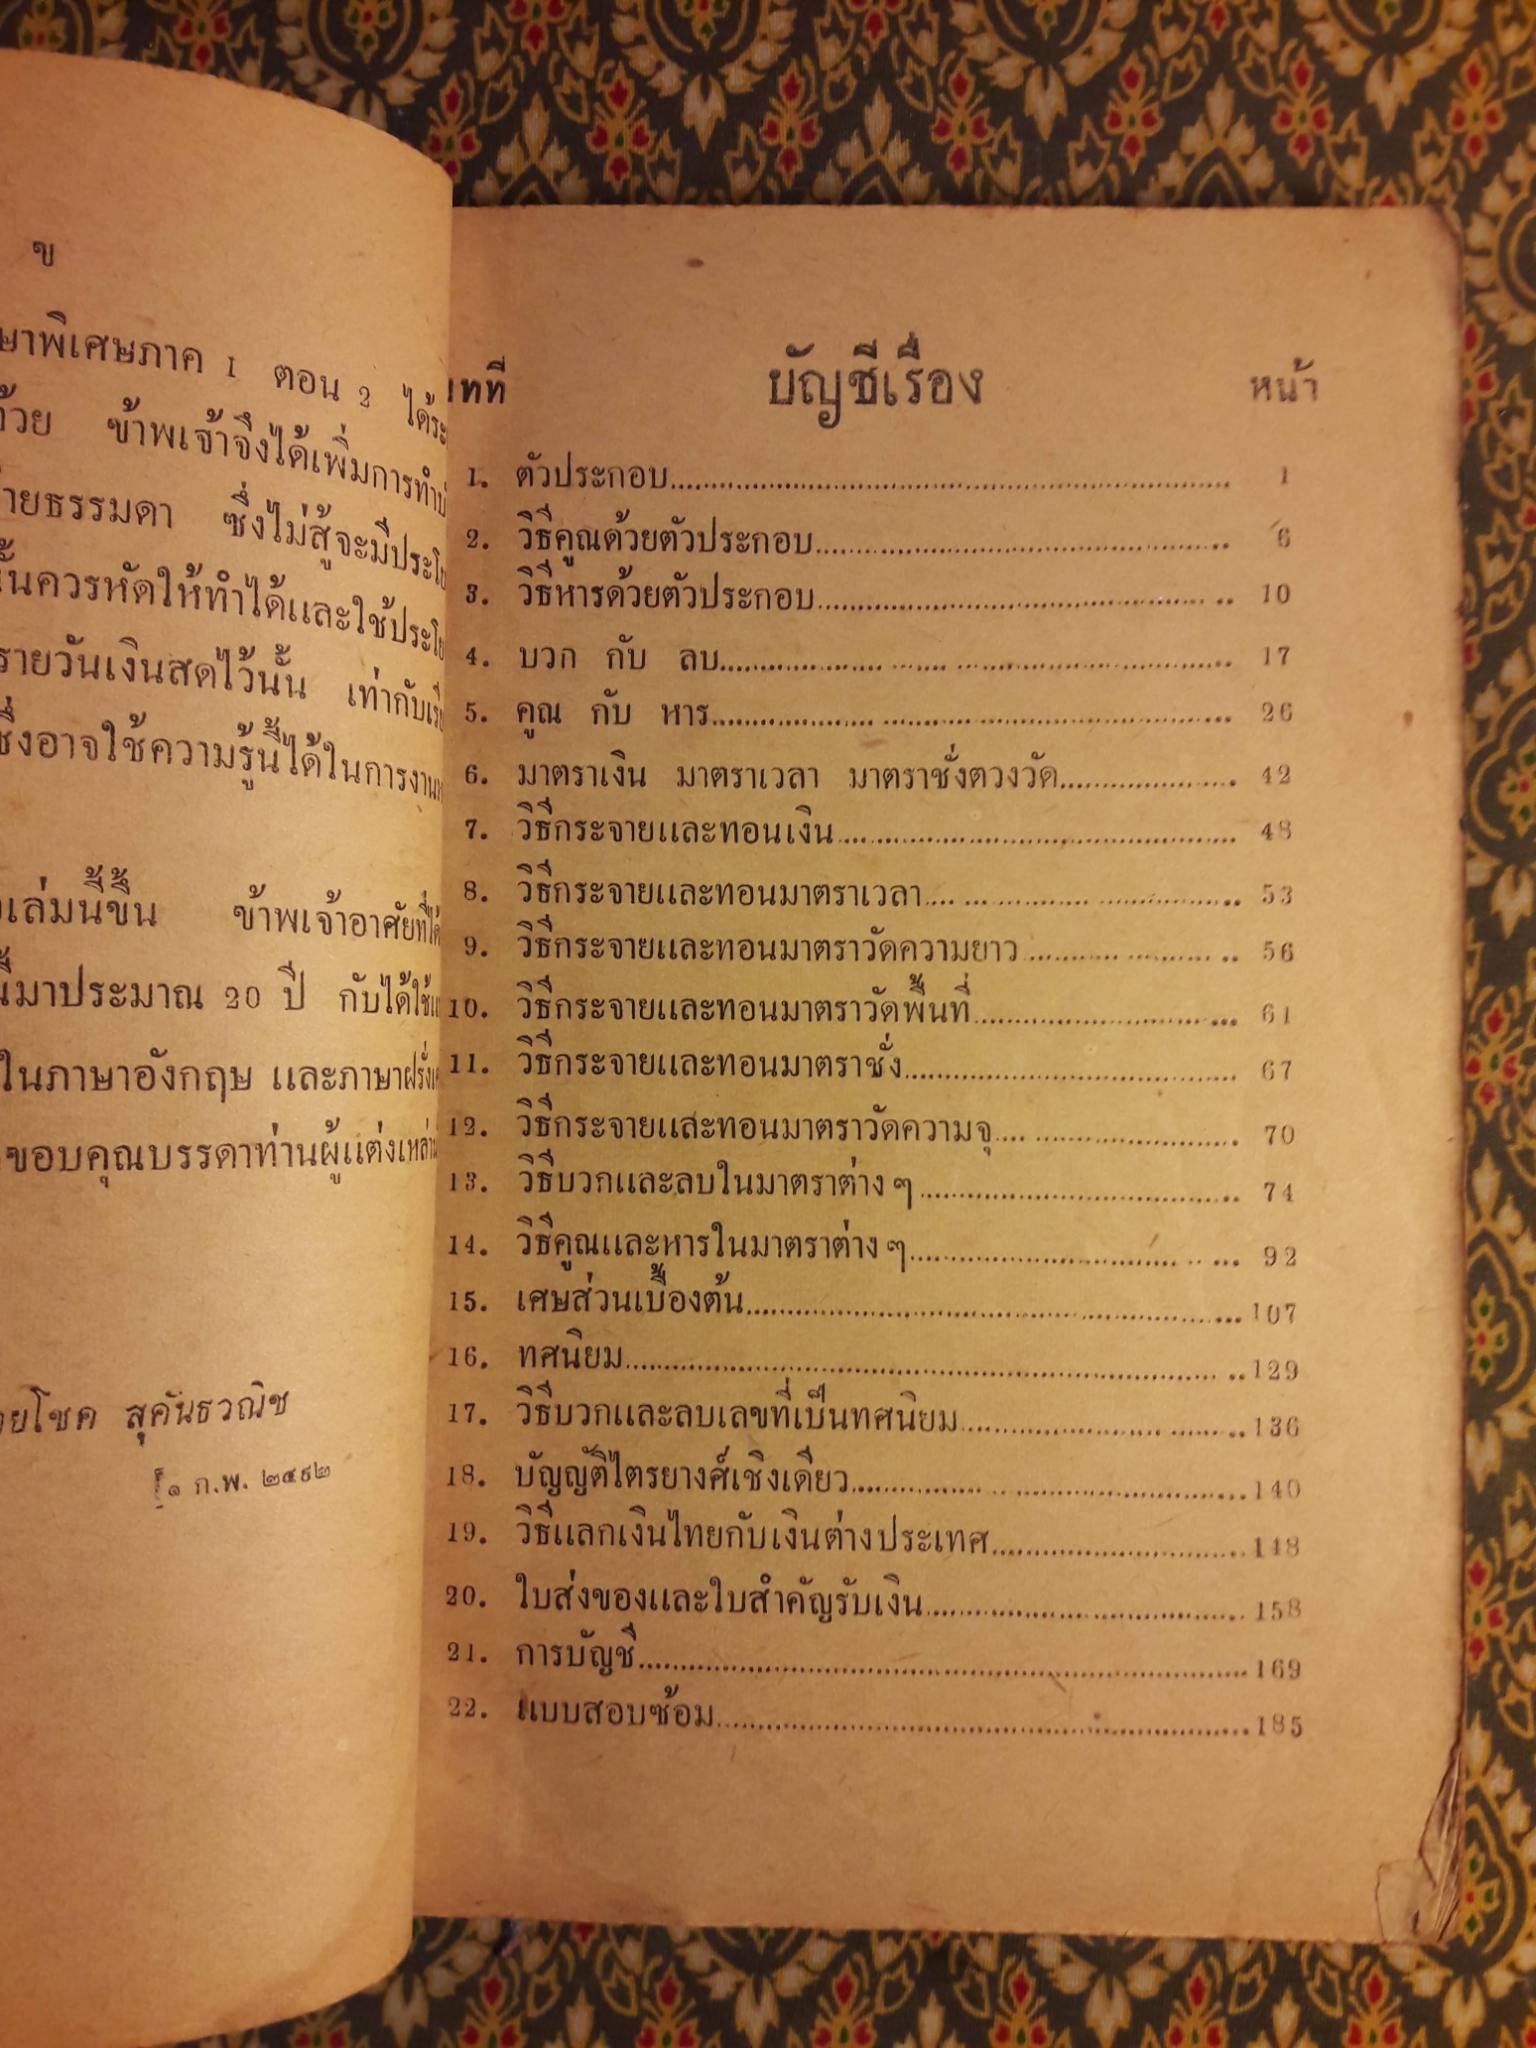 ข
ษาพิเศษภาค 1 ตอน 2 ได้ระ
ด้วย ข้าพเจ้าจึงได้เพิ่มการทำบั
ายธรรมดา ซึ่งไม่สู้จะมีประโย
นั้นควรหัดให้ทำได้และใช้ประโย
รายวันเงินสดไว้นั้น เท่ากับเรีย
ซึ่งอาจใช้ความรู้นี้ได้ในการงาน
เล่มนี้ขึ้น ข้าพเจ้าอาศัยที่ได้
นี้มาประมาณ 20 ปี กับได้ใช้แ
ในภาษาอังกฤษ และภาษาฝรั่งเ
ขอบคุณบรรดาท่านผู้แต่งเหล่านี้
ายโชค สุคันธวณิช
๑ ก.พ. ๒๔๙๒
บทที่ บัญชีเรื่อง หน้า
1. ตัวประกอบ 1
2. วิธีคูณด้วยตัวประกอบ 6
3. วิธีหารด้วยตัวประกอบ 10
4. บวก กับ ลบ 17
5. คูณ กับ หาร 26
6. มาตราเงิน มาตราเวลา มาตราชั่งตวงวัด 42
7. วิธีกระจายและทอนเงิน 48
8. วิธีกระจายและทอนมาตราเวลา 53
9. วิธีกระจายและทอนมาตราวัดความยาว 56
10. วิธีกระจายและทอนมาตราวัดพื้นที่ 61
11. วิธีกระจายและทอนมาตราชั่ง 67
12. วิธีกระจายและทอนมาตราวัดความจุ 70
13. วิธีบวกและลบในมาตราต่าง ๆ 74
14. วิธีคูณและหารในมาตราต่าง ๆ 92
15. เศษส่วนเบื้องต้น 107
16. ทศนิยม 129
17. วิธีบวกและลบเลขที่เป็นทศนิยม 136
18. บัญญัติไตรยางศ์เชิงเดียว 140
19. วิธีแลกเงินไทยกับเงินต่างประเทศ 148
20. ใบส่งของและใบสำคัญรับเงิน 158
21. การบัญชี 169
22. แบบสอบซ้อม 185